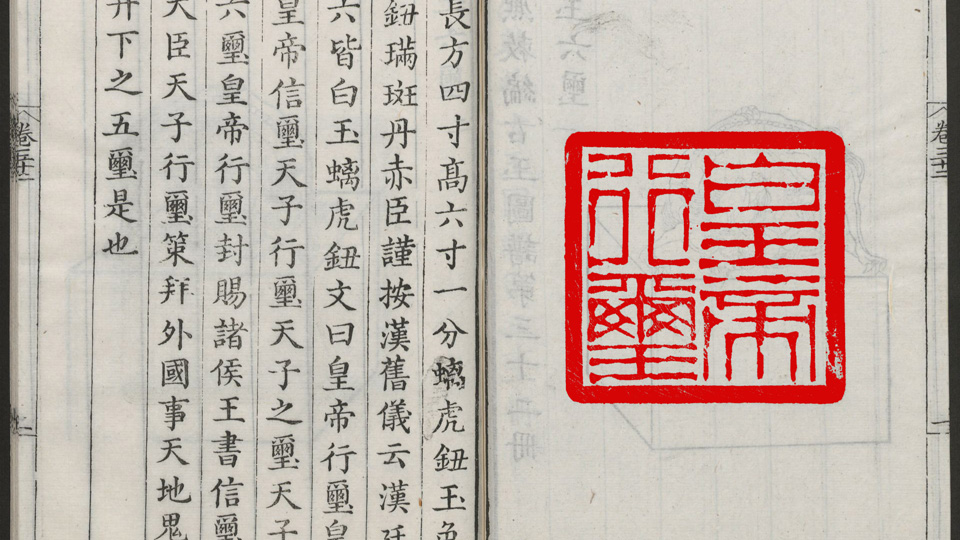 皇帝
行璽
長方四寸高六寸一分螭虎鈕玉色
鈕璊斑丹赤臣謹按漢舊儀云漢
六皆白玉螭虎鈕文曰皇帝行璽皇
皇帝信璽天子行璽天子之璽天子
六璽皇帝行璽封賜諸侯王書信璽
大臣天子行璽策拜外國事天地鬼
并下之五璽是也